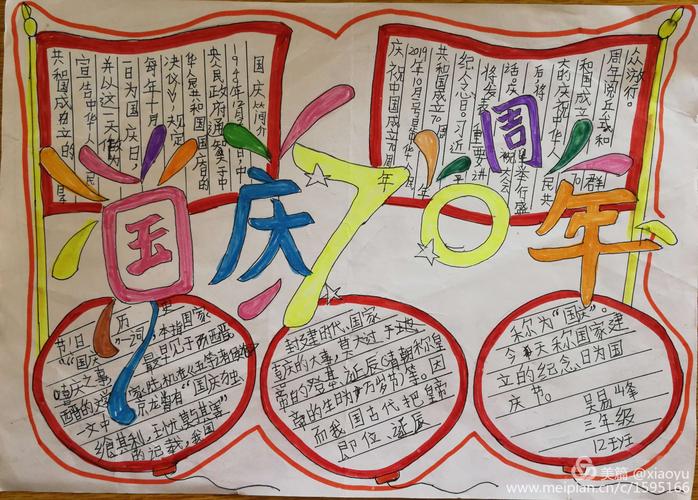 国庆70周年
国庆简介
央人民政府通知《关于中
华人民共和国国庆日的
决议》规定
每年十月
一日为国庆日,
并以这一天作为
宣告中华人民
共和国成立的日子
众游行。
周年阅兵式和群
和国成立70
大的庆祝中华人民共
后,将举行盛
话。庆祝大会
将发表重要讲
纪念日。习近平
共和国成立70周年
2019年10月1号是中华人民
庆祝中国成立70周年
节日历史
“国庆”一词,本指国家
喜庆之事,最早见于西晋
文中就有“国庆独
的记载,我国
封建时代、国家
喜庆的大事,莫大过于
帝的登基、诞辰(清朝称皇
帝的生日为万岁)等。因
而我国古代把皇帝
即位、诞辰
称为“国庆”。
今天称国家建
立的纪念日为国
庆节。
吴易峰
三年级
12班
美篇 @xiaoyu
www.meipian.cn/c/1595166